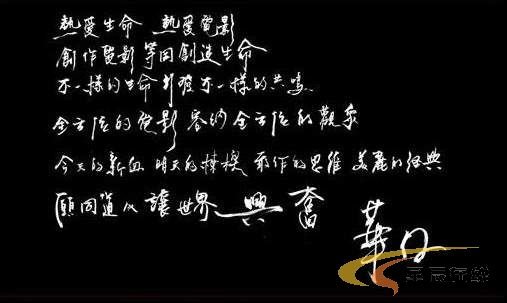 熱愛生命 熱愛電影
創作電影等同創造生命
不一樣的生命 打從不一樣的共鳴
全方位的電影 容納全方位的觀眾
今天的新血 明天的棟樑 新作的思維 美麗的經典
願同道人讓世界興奮
華